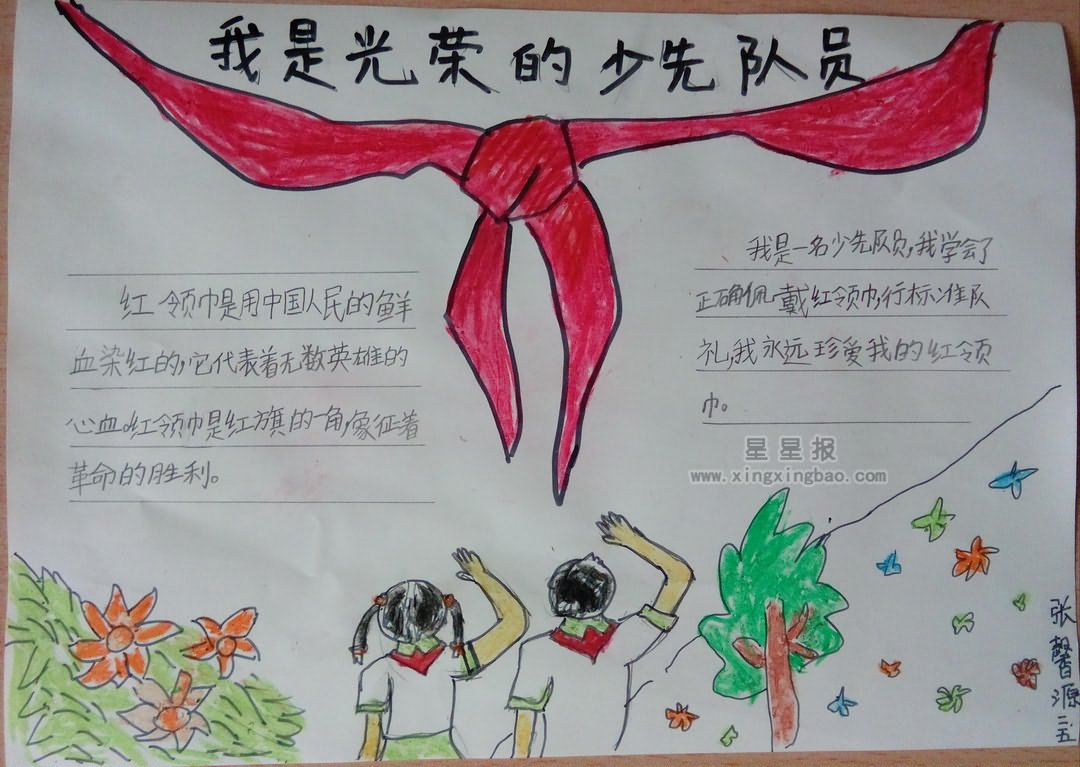 我是光荣的少先队员
红领巾是用中国人民的鲜
血染红的,它代表着无数英雄的
心血。红领巾是红旗的一角,象征着
革命的胜利。
我是一名少先队员,我学会了
正确佩戴红领巾,行标准队
礼,我永远珍爱我的红领
巾。
星星报
www.xingxingbao.com
张馨源二.五